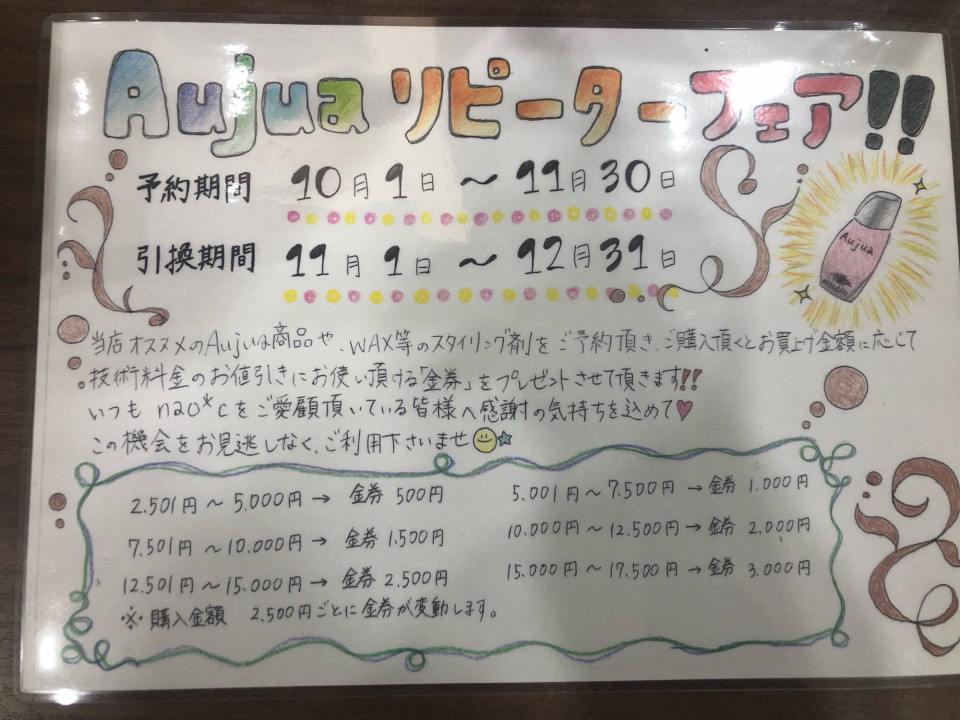 Aujua リピーターフェア!!
予約期間 10月1日 〜 11月30日
引換期間 11月1日 〜 12月31日
Aujua
当店オススメのAujua商品や、WAX等のスタイリング剤をご予約頂き、ご購入頂くとお買上げ金額に応じて
技術料金のお値引きにお使い頂ける「金券」をプレゼントさせて頂きます!!
いつも nao*cをご愛顧頂いている皆様へ感謝の気持ちを込めて♥
この機会をお見逃しなく、ご利用下さいませ
2.501円〜5.000円→ 金券 500円
5.001円〜7.500円→金券 1.000円
7.501円〜10.000円→ 金券 1.500円
10.000円〜12.500円→金券 2.000円
12.501円〜15.000円→ 金券 2.500円
15.000円〜17.500円→金券 3.000円
※購入金額 2.500円ごとに金券が変動します。